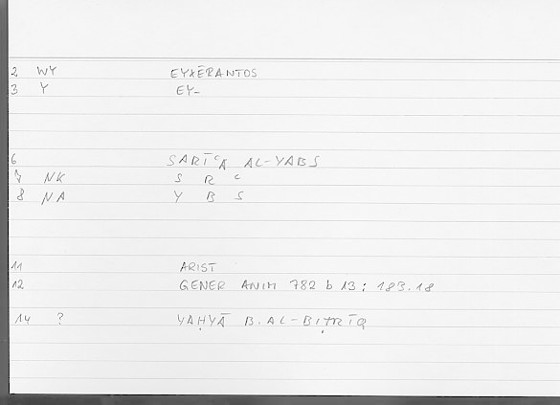 2 WY EYXĒRANTOS
3 Y EY-
6 SARĪʿA AL-YABS
7 NK S R ʿ
8 NA Y B S
11 ARIST
12 GENER ANIM 782 b 13 : 183.18
14 ? YAḤYĀ B. AL-BIṬRĪQ